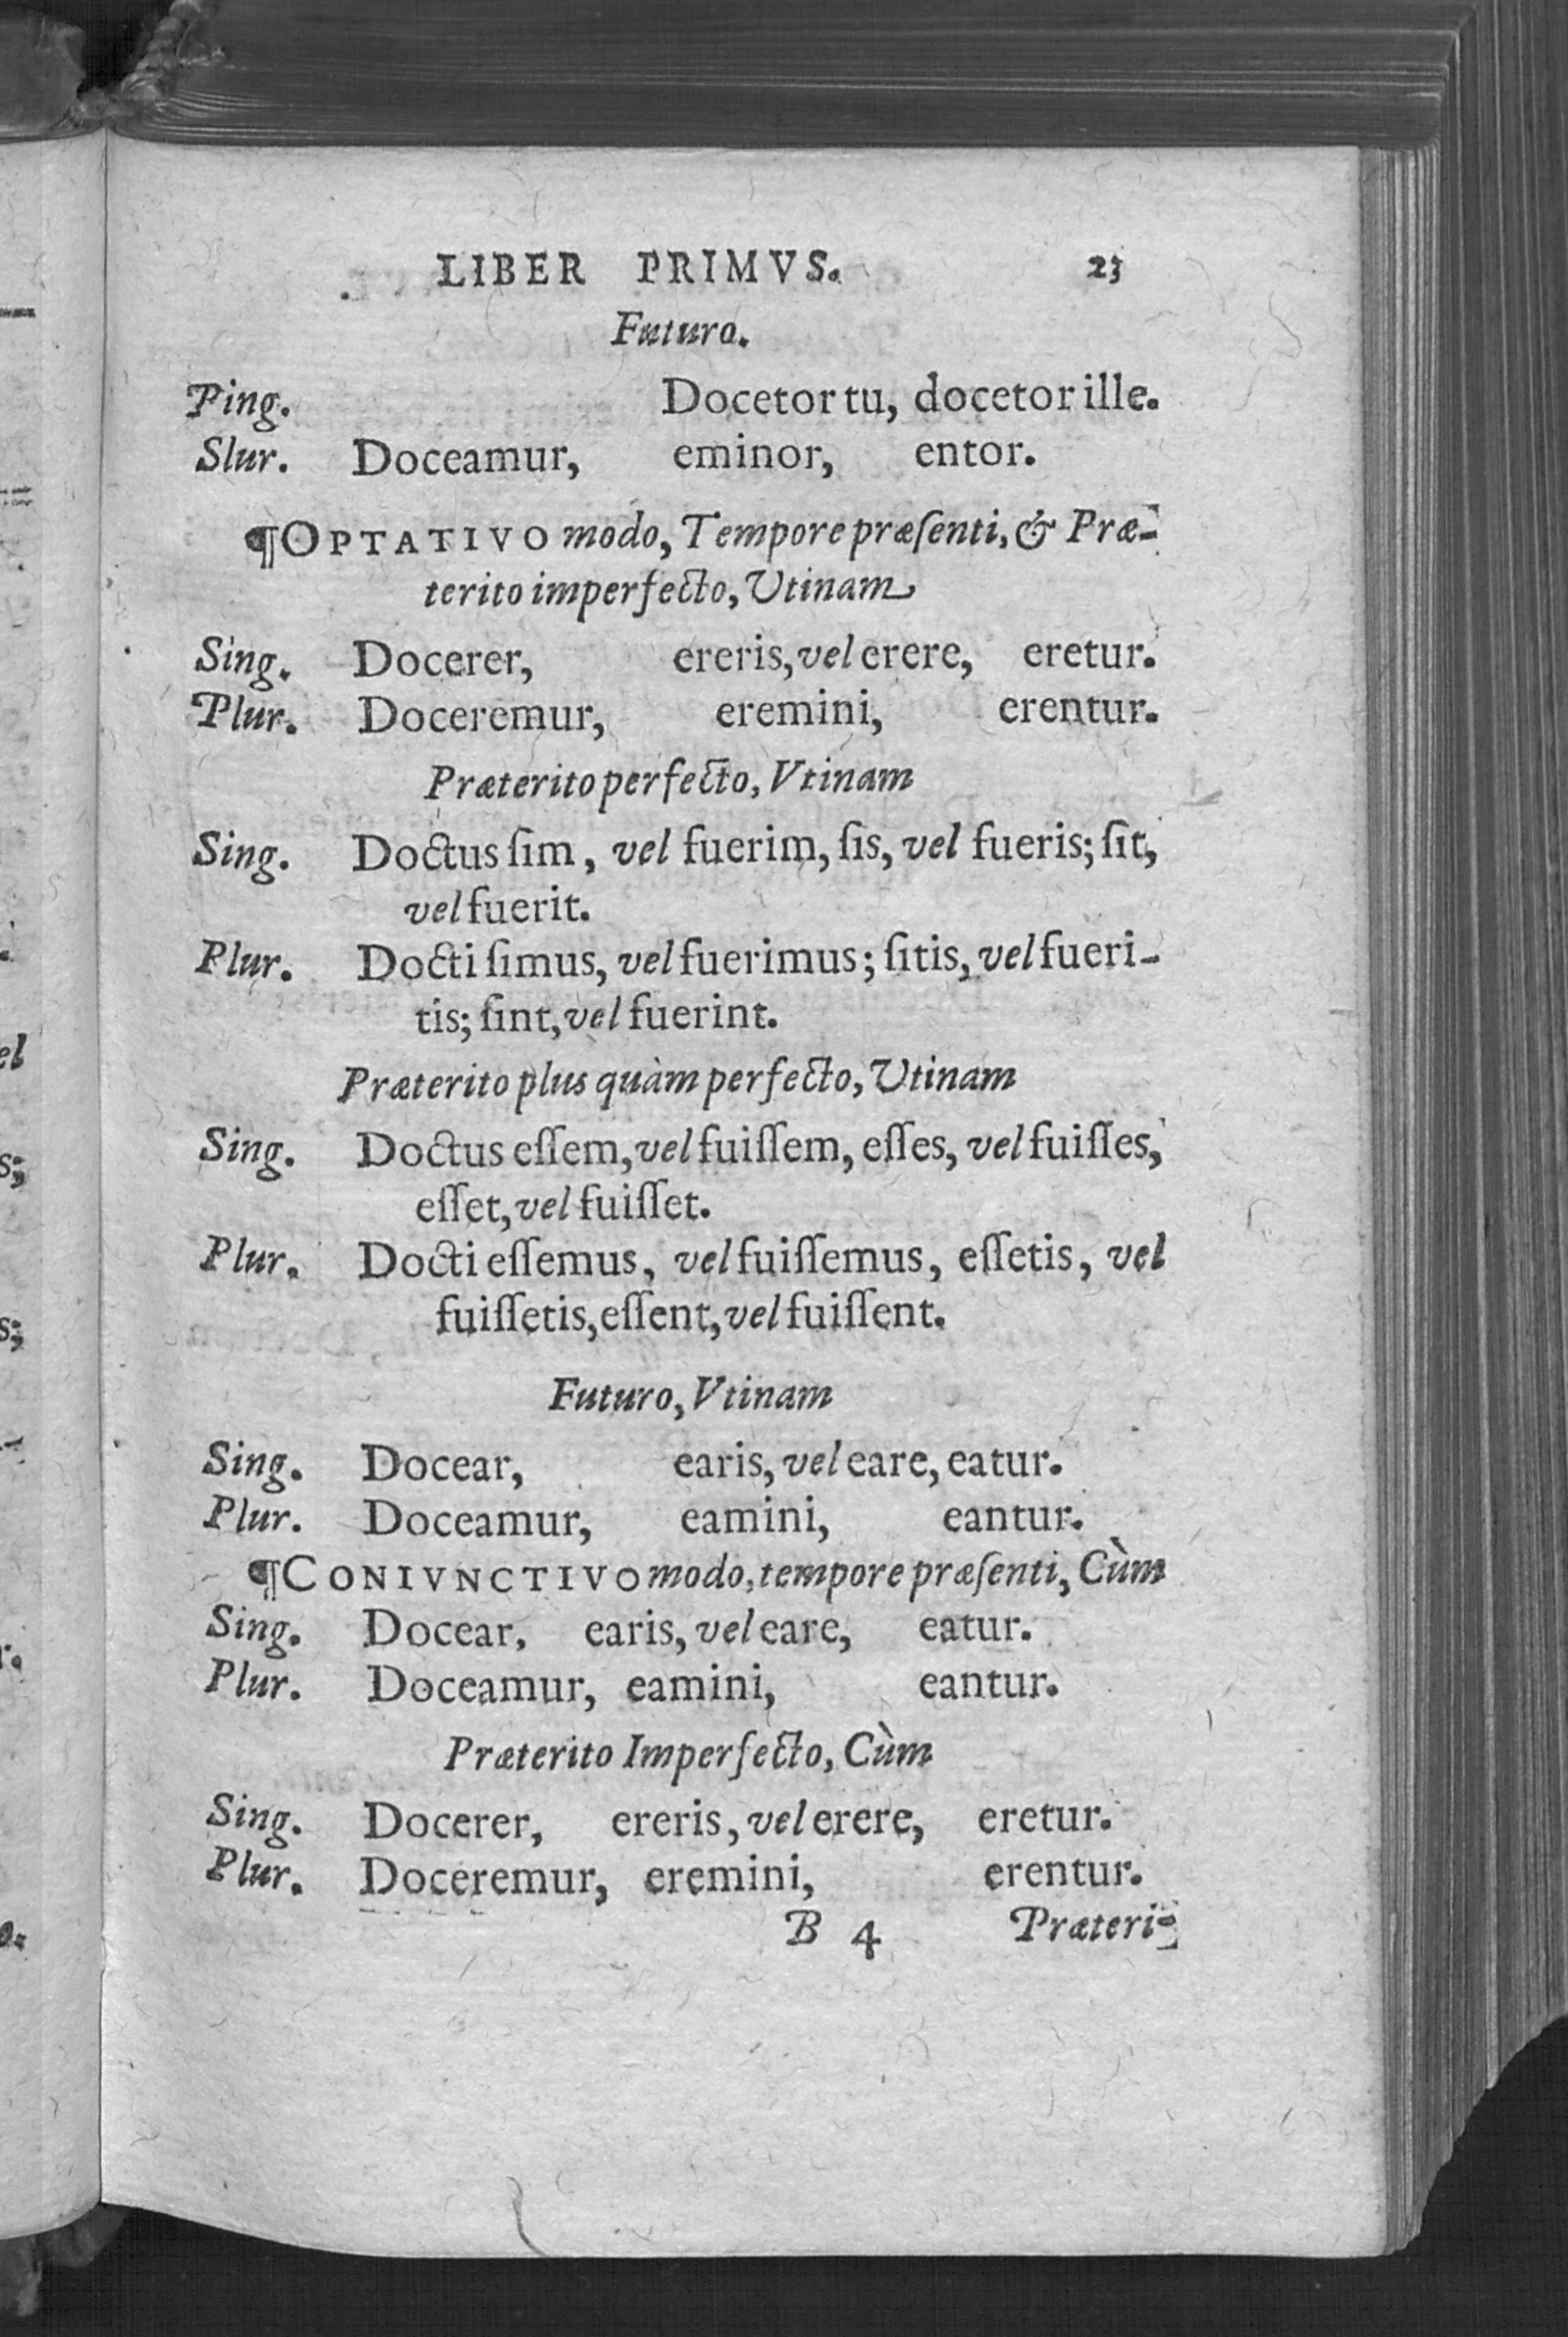 LIBER PRIMVS. 23
Futuro.
Ping. Docetor tu, docetor ille.
Slur. Doceamur, eminor, entor.
¶OPTATIVO modo, Tempore præſenti, & Præ-
terito imperfecto, Utinam
Sing. Docerer, ereris, vel erere, eretur.
Plur. Doceremur, eremini, erentur.
Præterito perfecto, Vtinam
Sing. Doctus ſim, vel fuerim, ſis, vel fueris; ſit,
vel fuerit.
Plur. Docti ſimus, vel fuerimus; ſitis, vel fueri-
tis; ſint, vel fuerint.
Præterito plus quàm perfecto, Utinam
Sing. Doctus eſſem, vel fuiſſem, eſſes, vel fuiſſes,
eſſet, vel fuiſſet.
Plur. Docti eſſemus, vel fuiſſemus, eſſetis, vel
fuiſſetis, eſſent, vel fuiſſent.
Futuro, Vtinam
Sing. Docear, earis, vel eare, eatur.
Plur. Doceamur, eamini, eantur.
¶CONIVNCTIVO modo, tempore præſenti, Cùm
Sing. Docear, earis, vel eare, eatur.
Plur. Doceamur, eamini, eantur.
Præterito Imperfecto, Cùm
Sing. Docerer, ereris, vel erere, eretur.
Plur. Doceremur, eremini, erentur.
B 4 Præteri-